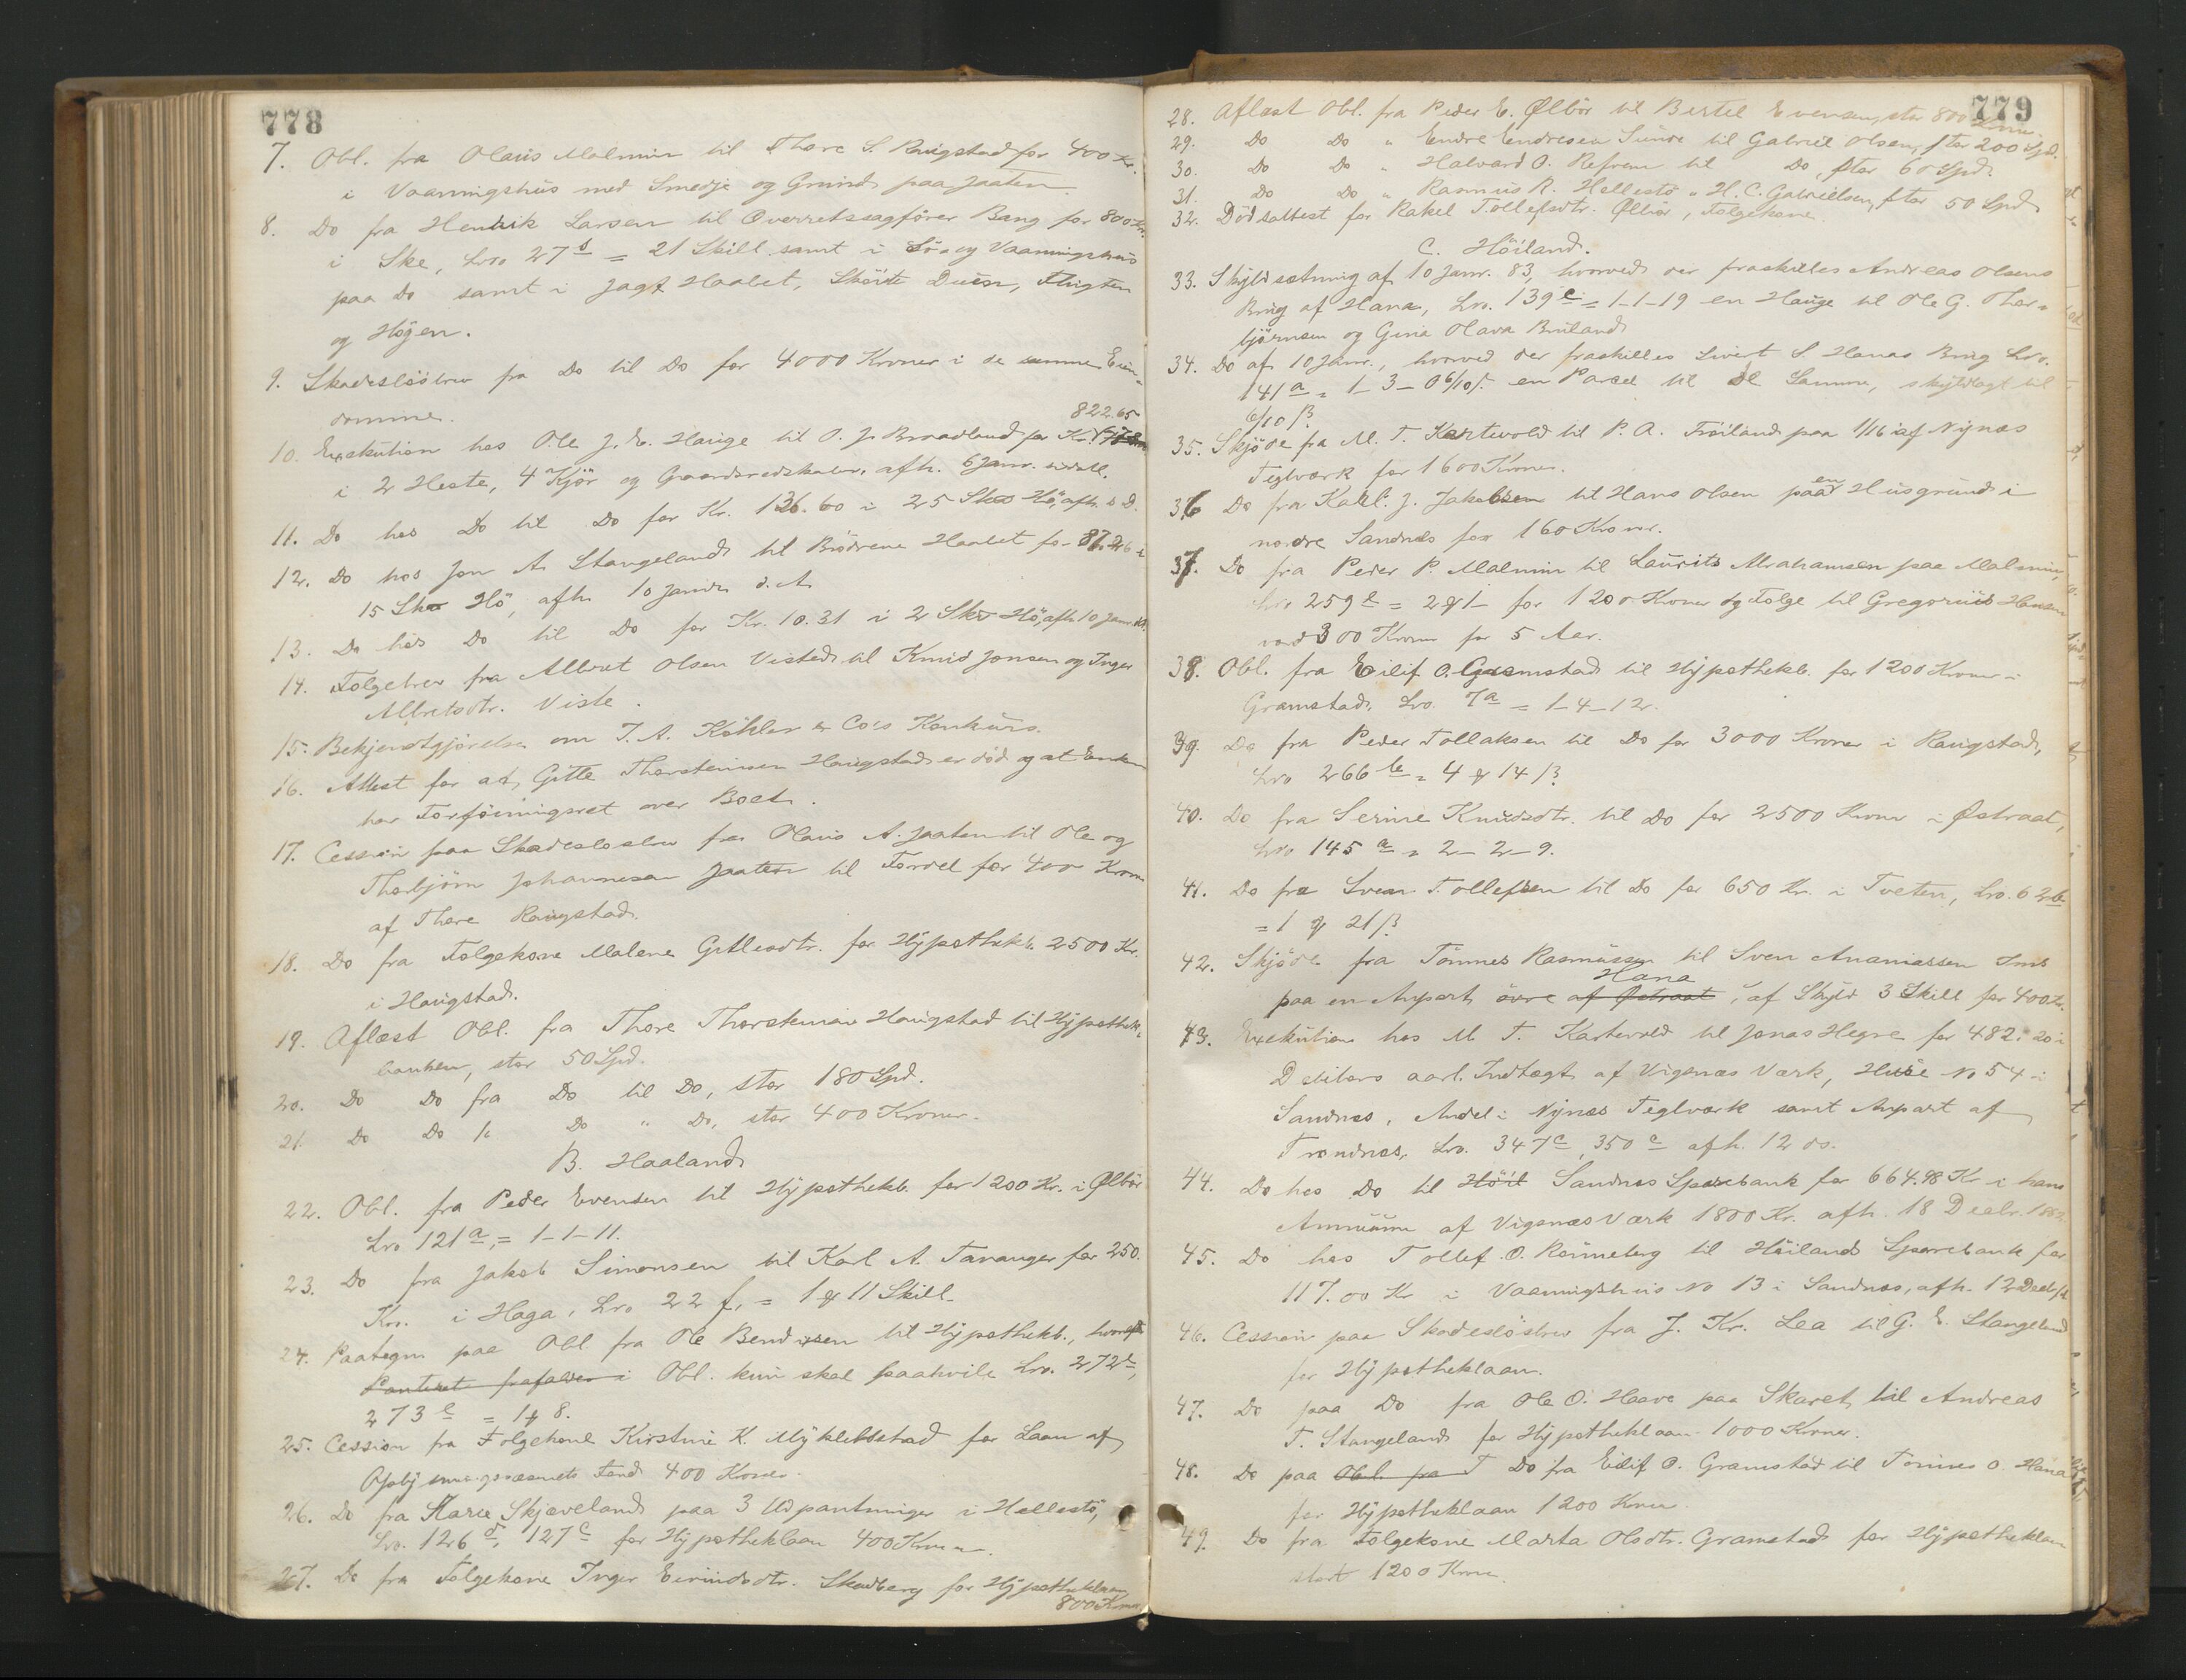 778
7. Obl. fra Olaus Malmin til Thore S. Raugstad for 400 Kr.
i Vaaningshus med Smedje og Grund paa Jaaten.
8. Do fra Henrik Larsen til Overretssagfører Bang for 800 Kr.
i Ske, Lno 27 = 21 Skill. samt i Sø- og Vaaningshus
paa Do samt i Jagt Haabet, Skøite Duen, Flugten
og Høgen.
9. Skadesløsbrev fra Do til Do for 4000 Kroner i de samme Eien-
domme.
822.65
10. Exekution hos Ole J. E. Hauge til O. J. Braadland for Kr.
i 2 Heste, 4 Kjør og Gaardsredskaber, afh. 6 Janr. sidstl.
11. Do hos Do til Do for Kr. 136.60 i 25 Skp Hö, afh. s. D.
12. Do hos Jon A. Stangeland til Brödrene Haabet for 87.26 i
15 Skp Hö, afh. 10 Januar d. A.
13. Do hos Do til Do for Kr. 10.31 i 2 Skp Hö, afh. 10 Janr. d.A.
14. Følgebrev fra Albret Olsen Visted til Knud Jonsen og Inger
Albretsdtr. Viste.
15. Bekjendtgjörelse om J. A. Köhler & Co's Konkurs.
16. Attest for at Gitle Thorsteinsen Haugstad er död og at Enken
har Forföiningsret over Boet.
17. Cession paa Skadesløsbrev fra Olaus A. Jaaten til Ole og
Thorbjörn Johannesen Jaaten til Fordel for 400 Kroner
af Thore Raugstad.
18. Do fra Folgekone Malene Gitlesdtr. for Hypothekb. 2500 Kr.
i Haugstad.
19. Aflæst Obl. fra Thore Thorsteinsen Haugstad til Hypothek-
banken, stor 50 Spd.
20. Do Do fra Do til Do, stor 180 Spd.
21. Do Do fr. Do " Do, stor 400 Kroner.
B. Haaland
22. Obl. fra Peder Evensen til Hypothekb. for 1200 Kr. i Ølbör
Lno 121 a, = 1-1-11.
23. Do fra Jakob Simonsen til Karl A. Tananger for 250
Kr. i Haga, Lno 22 f, = 1 11 Skill.
24. Paategn. paa Obl. fra Ole Bendixsen til Hypothekb., hvorefter
Panteret frafalder i Obl. kun skal paahvile Lno. 272 ,
273 = 1 8.
25. Cession fra Folgekone Kirstine K. Myklebstad for Laan af
Oplysningsvæsenets Fond 400 Kroner.
26. Do fra Marie Skjæveland paa 3 Udpantninger i Hellestö,
Lno. 126 d, 127 c for Hypotheklaan 400 Kroner.
27. Do fra Følgekone Inger Eivindsdtr. Skadberg for Hypotheklaan
800 Kroner.
779
28. Aflæst Obl. fra Peder E. Ølbör til Bertel Evensen, stor 800 Kroner.
29. Do Do " Endre Endresen Sunde til Gabriel Olsen, stor 200 Spd.
30. Do Do " Halvard O. Refsnes til Do, stor 60 Spd.
31. Do Do " Rasmus R. Hellestö " H. C. Gabrielsen, stor 50 Spd.
32. Dödsattest for Rakel Tollefsdtr. Ølbör, Følgekone
C. Höiland.
33. Skyldsætning af 10 Janr. 83, hvorved der fraskilles Andreas Olsens
Brug af Hana, Lno. 139 c = 1-1-19 en Hauge til Ole G. Thor-
björnsen og Gina Olava Bruland
34. Do af 10 Janr., hvorved der fraskilles Sivert S. Hanas Brug Lno.
141 a = 1-3-0 6/10 ß en Parcel til de Samme, skyldlagt til
6/10 ß
35. Skjöde fra M. T. Kartevold til P. A. Fröiland paa 1/16 af Nynæs
Teglværk for 1600 Kroner.
36 Do fra Karl J. Jakobsen til Hans Olsen paa en Husgrund i
nordre Sandnes for 160 Kroner.
37. Do fra Peder P. Malmin til Laurits Abrahamsen paa Malmin,
Lno 259 = 2 1 for 1200 Kroner og Følge til Gregorius Hansen
værd 300 Kroner for 5 Aar.
38. Obl. fra Eilif O. Gramstad til Hypothekb. for 1200 Kroner i
Gramstad, Lno. 7 a = 1-4-12.
39. Do fra Peder Tollaksen til Do for 3000 Kroner i Raugstad,
Lno 266 b = 4 14 ß
40. Do fra Serine Knudsdtr. til Do for 2500 Kroner i Østraat,
Lno 145 a = 2-2-9.
41. Do fra Sven Tollefsen til Do for 650 Kr. i Tveten, Lno. 62 b
= 1 21 ß
42. Skjöde fra Tönnes Rasmussen til Sven Ananiassen Ims
paa en Anpart övre af Østraat Hana, af Skyld 3 Skill for 400 Kr.
43. Exekution hos M. T. Kartevold til Jonas Hegre for 482.20 i
Debitors aarl. Indtægt af Vigsnæs Værk, Huse No 54 i
Sandnes, Andel i Nynæs Teglværk samt Anpart af
Trondnes, Lno. 347 c, 350 c afh. 12 ds.
44. Do hos Do til Höil Sandnes Sparebank for 664.98 Kr i hans
Annuum af Vigsnæs Værk 1800 Kr. afh. 18 Decbr. 1882
45. Do hos Tollef O. Rönneberg til Höilands Sparebank for
117.00 Kr i Vaaningshus No 13 i Sandnes, afh. 12 Decb. f.A.
46. Cession paa Skadeslösbrev fra J. Kr. Lea til G. E. Stangeland
for Hypotheklaan.
47. Do paa Do fra Ole O. Haave paa Skaret til Andreas
T. Stangeland for Hypotheklaan 1000 Kroner.
48. Do paa Obl. fra T Do fra Eilif O. Gramstad til Tönnes O. Hana
for Hypotheklaan 1200 Kroner.
49. Do fra Følgekone Marta Olsdtr. Gramstad for Hypotheklaan
stort 1200 Kroner.